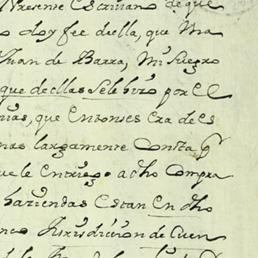 Presente Escrivano de que
o doy fee della, que Ma
Juan de Barza, mi suegro
que dellas se le hizo por el
que entonses era de es
mas largamente consta q
ue le entrego a dho compra
haziendas estan en dho
Jurisdiccion de Cuen